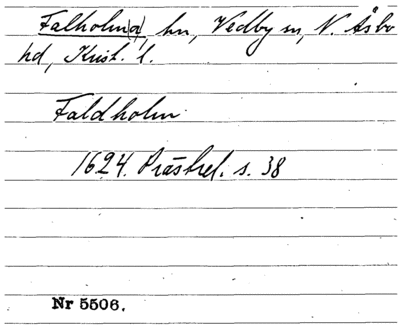 Falholm(a), hn, Vedby sn, N. Åsbo
hd, Krist. l.
Faldholm
1624. Prästrel. s. 38
Nr 5506.